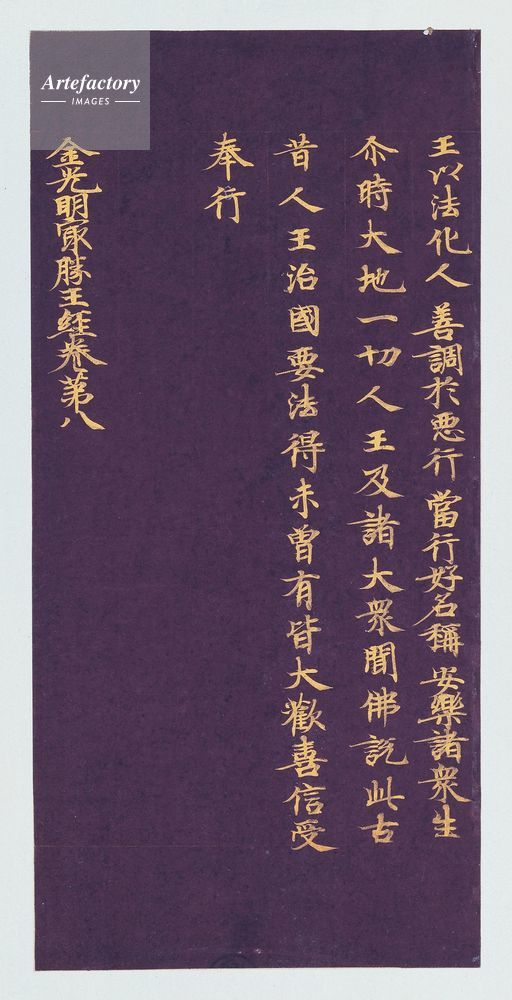 王以法化人善調於悪行當行好名稱安樂諸衆生
尒時大地一切人王及諸大衆聞佛説此古
昔人王治國要法得未曾有皆大歡喜信受
奉行
金光明㝡勝王經卷第八
Artefactory
IMAGES